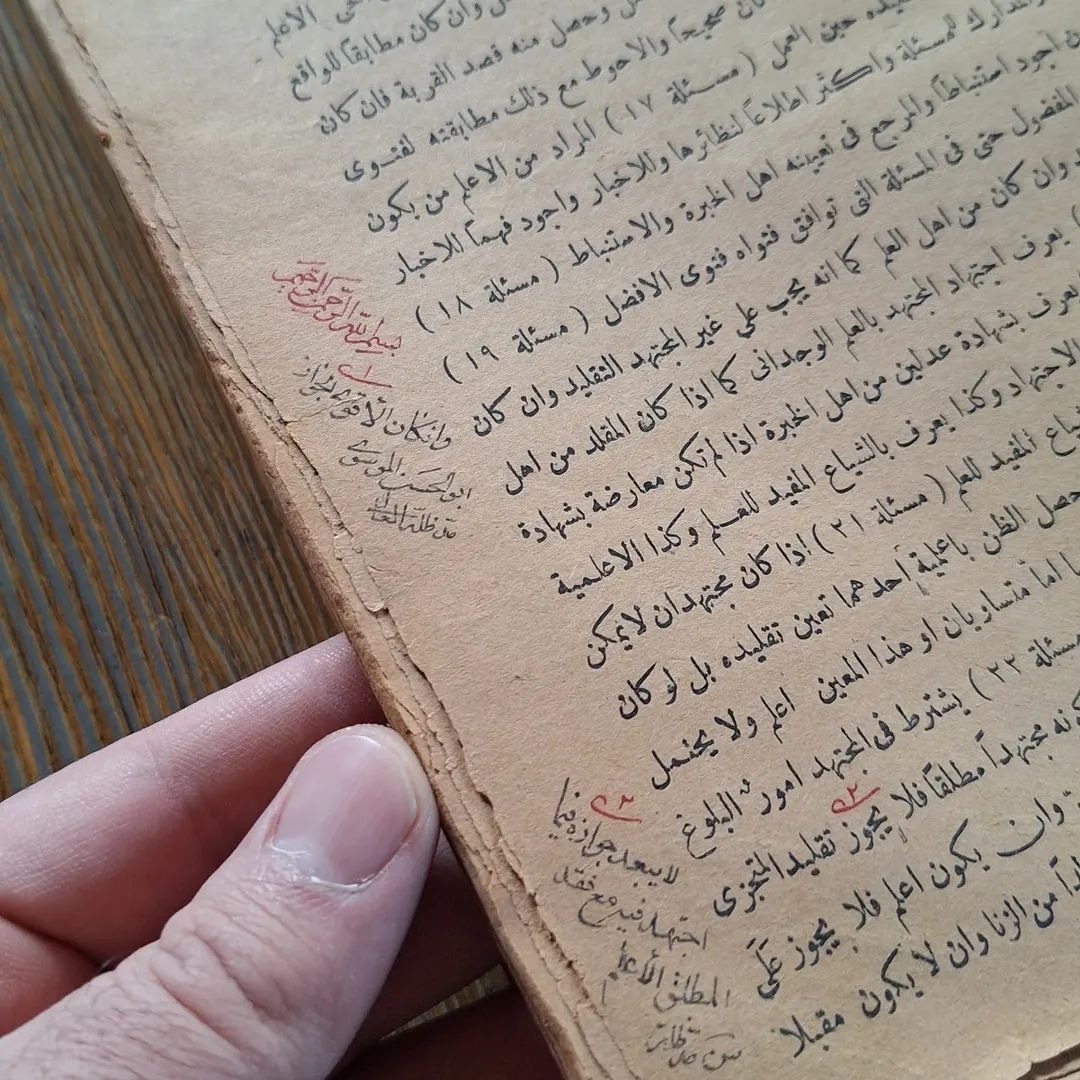 الاعلم
وان كان مطابقاً للواقع
وحصل منه قصد القربة فان كان
صحيحاً والاحوط مع ذلك مطابقته لفتوى
حين العمل (مسئلة ١٧) المراد من الاعلم من يكون
للمسئلة واكثر اطلاعاً لنظائرها وللاخبار واجود فهماً للاخبار
اجود استنباطاً والمرجع فى تعيينه اهل الخبرة والاستنباط (مسئلة ١٨)
المفضول حتى فى المسئلة التى توافق فتواه فتوى الافضل (مسئلة ١٩)
وان كان من اهل العلم كما انه يجب على غير المجتهد التقليد وان كان
) يعرف اجتهاد المجتهد بالعلم الوجدانى كما اذا كان المقلد من اهل
يعرف بشهادة عدلين من اهل الخبرة اذا لم تكن معارضة بشهادة
الاجتهاد وكذا يعرف بالشياع المفيد للعلم وكذا الاعلمية
المفيد للعلم (مسئلة ٢١) اذا كان مجتهدان لا يمكن
حصل الظن باعلمية احدهما تعين تقليده بل لو كان
اما متساويان او هذا المعين اعلم ولا يحتمل
مسئلة ٢٢) يشترط فى المجتهد امور البلوغ
مجتهداً مطلقاً فلا يجوز تقليد المتجزى
وان يكون اعلم فلا يجوز على
من الزنا وان لا يكون مقبلا
بسم الله الرحمن الرحيم
وان كان الأقوى الجواز
ابو الحسن الموسوي
مد ظله العالي
لا يبعد جوازه فيما
اجتهد فيه مع فقد
المطلق الأعلم